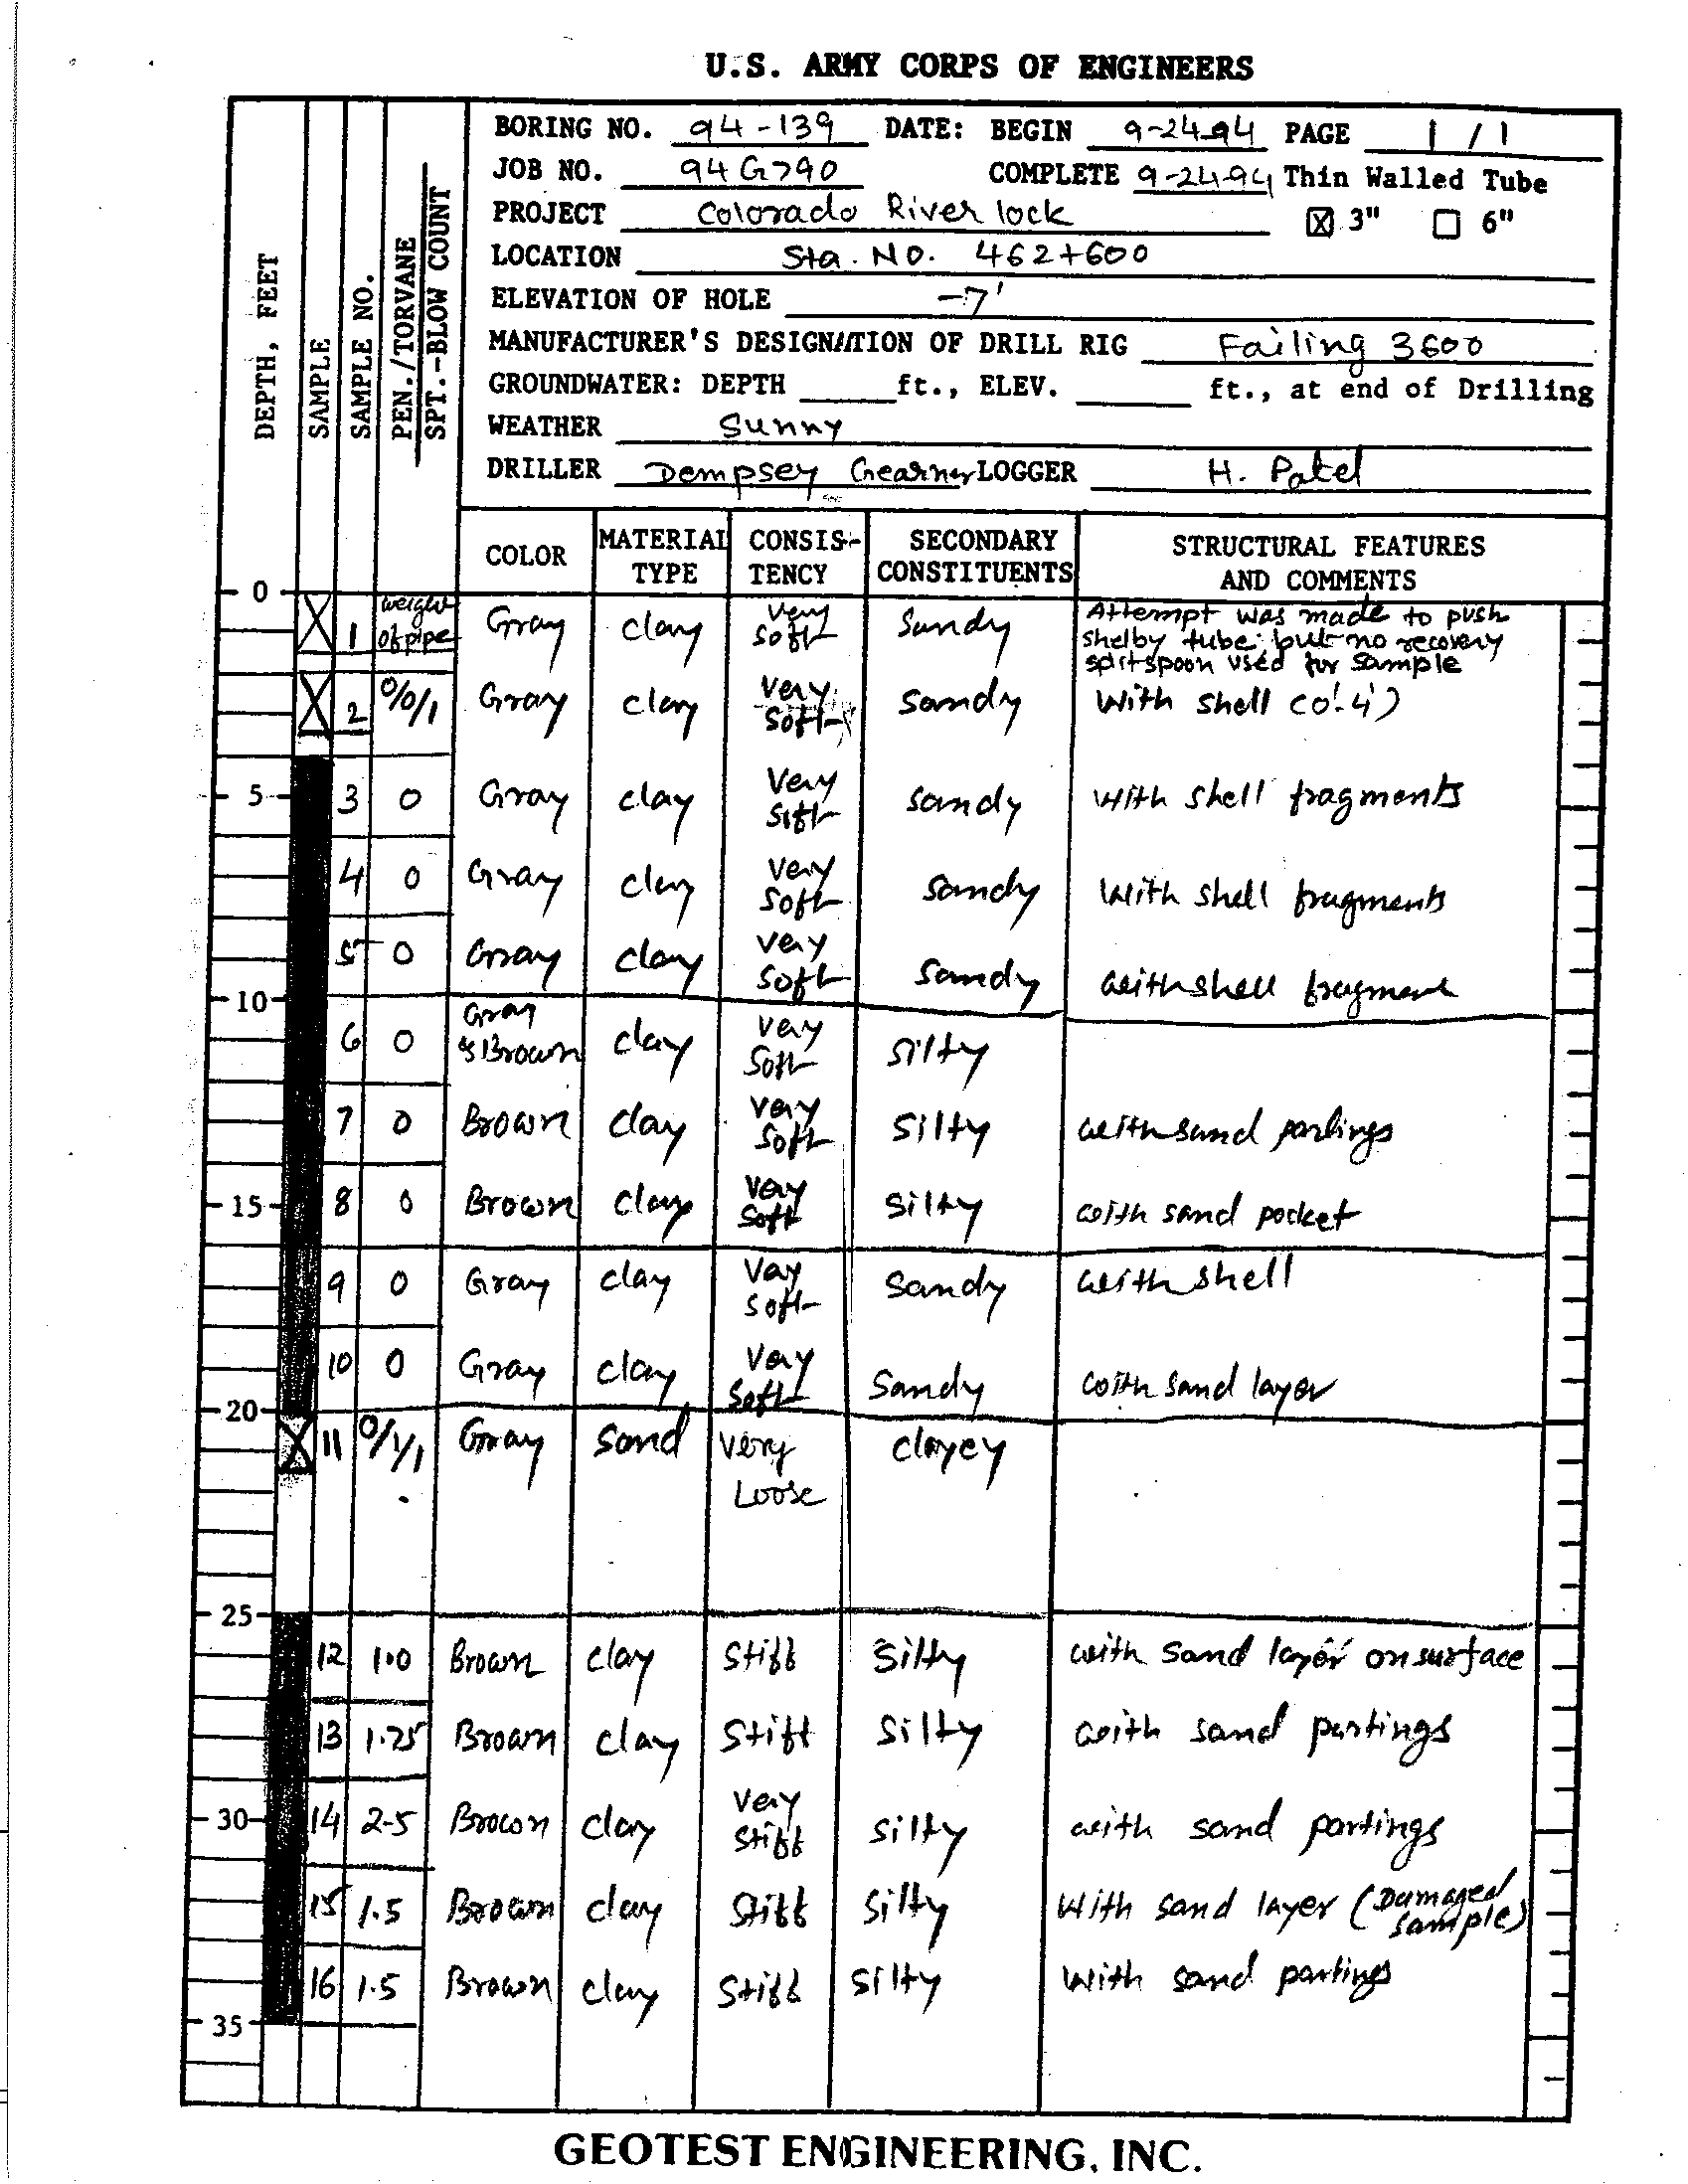 U.S. ARMY CORPS OF ENGINEERS
DEPTH, FEET
SAMPLE
SAMPLE NO.
PEN./TORVANE
SPT.-BLOW COUNT
BORING NO. 94-139 DATE: BEGIN 9-24-94 PAGE 1/1
JOB NO. 94G790 COMPLETE 9-24-94 Thin Walled Tube
PROJECT Colorado River lock ☒ 3" ☐ 6"
LOCATION Sta. No. 462+600
ELEVATION OF HOLE -7'
MANUFACTURER'S DESIGNATION OF DRILL RIG Failing 3600
GROUNDWATER: DEPTH ft., ELEV. ft., at end of Drilling
WEATHER Sunny
DRILLER Dempsey Gearner LOGGER H. Patel
COLOR MATERIAL TYPE CONSIS-TENCY SECONDARY CONSTITUENTS STRUCTURAL FEATURES AND COMMENTS
0
1 weight of pipe Gray clay very soft Sandy Attempt was made to push
shelby tube; but no recovery
splitspoon used for sample
2 0/0/1 Gray clay Very Soft Sandy With shell (0'-4')
5 3 0 Gray clay Very Soft Sandy with shell fragments
4 0 Gray clay Very Soft Sandy With shell fragments
5 0 Gray clay very Soft Sandy with shell fragment
10
6 0 Gray & Brown clay very Soft Silty
7 0 Brown clay very Soft Silty with sand partings
15 8 0 Brown clay very Soft Silty with sand pocket
9 0 Gray clay Very Soft Sandy with shell
10 0 Gray clay Very Soft Sandy with sand layer
20
11 0/1/1 Gray Sand very Loose clayey
25
12 1.0 Brown clay Stiff Silty with sand layer on surface
13 1.25 Brown clay Stiff Silty with sand partings
30 14 2.5 Brown clay Very Stiff Silty with sand partings
15 1.5 Brown clay Stiff Silty With sand layer (Damaged sample)
16 1.5 Brown clay Stiff Silty With sand partings
35
GEOTEST ENGINEERING, INC.